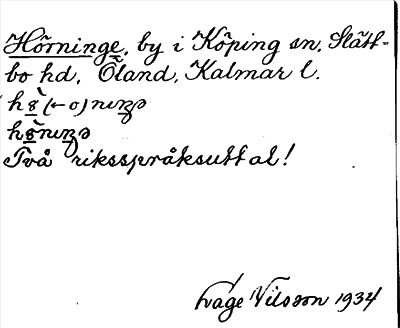 Hörninge, by i Köping sn, Slätt-
bo hd, Öland, Kalmar l.
hö̀(←o)niŋə
hö̀niŋə
Två riksspråksuttal!
Tage Nilsson 1934